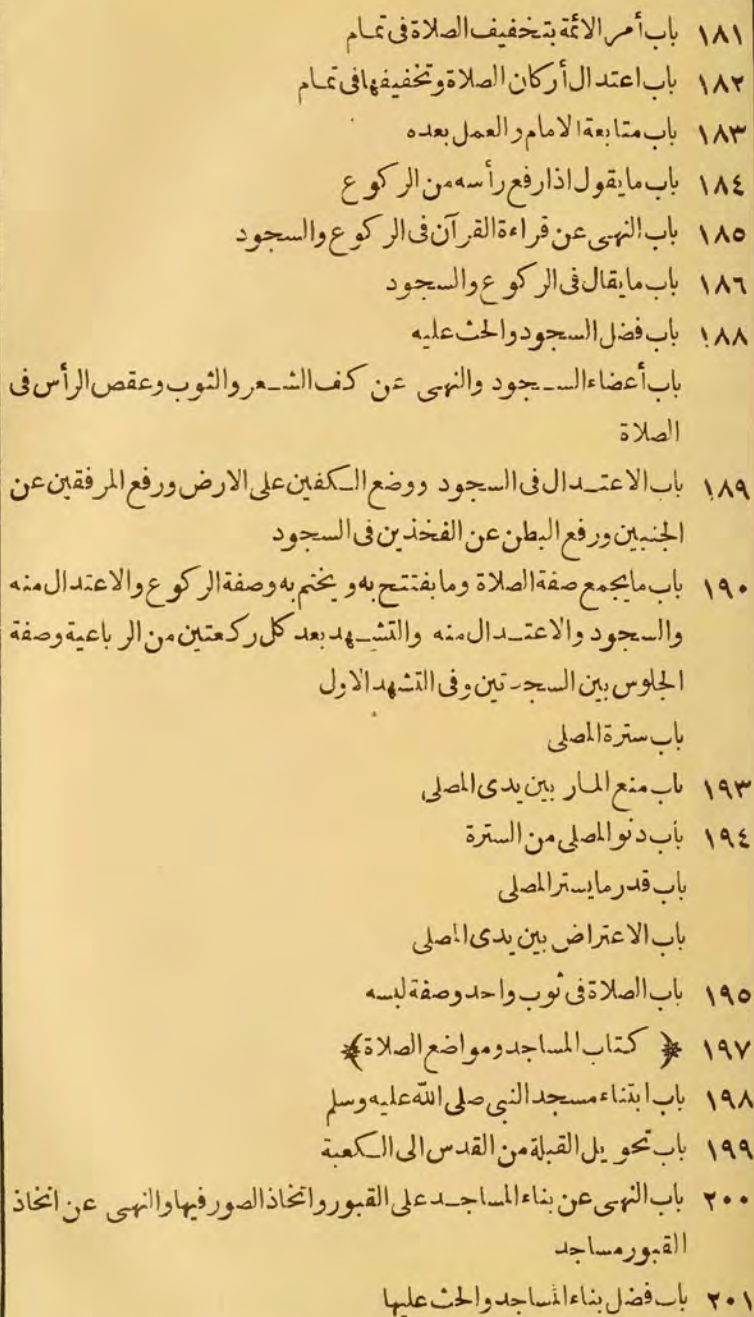 ١٨١ باب أمر الائمة بتخفيف الصلاة فى تمام
١٨٢ باب اعتدال أركان الصلاة وتخفيفها فى تمام
١٨٣ باب متابعة الامام والعمل بعده
١٨٤ باب ما يقول اذا رفع رأسه من الركوع
١٨٥ باب النهى عن قراءة القرآن فى الركوع والسجود
١٨٦ باب ما يقال فى الركوع والسجود
١٨٨ باب فضل السجود والحث عليه
باب أعضاء السجود والنهى عن كف الشعر والثوب وعقص الرأس فى
الصلاة
١٨٩ باب الاعتدال فى السجود ووضع الكفين على الارض ورفع المرفقين عن
الجنبين ورفع البطن عن الفخذين فى السجود
١٩٠ باب ما يجمع صفة الصلاة وما يفتتح به ويختم به وصفة الركوع والاعتدال منه
والسجود والاعتدال منه والتشهد بعد كل ركعتين من الرباعية وصفة
الجلوس بين السجدتين وفى التشهد الاول
باب سترة المصلى
١٩٣ باب منع المار بين يدى المصلى
١٩٤ باب دنو المصلى من السترة
باب قدر ما يستر المصلى
باب الاعتراض بين يدى المصلى
١٩٥ باب الصلاة فى ثوب واحد وصفة لبسه
١٩٧ ﴿ كتاب المساجد ومواضع الصلاة ﴾
١٩٨ باب ابتناء مسجد النبى صلى الله عليه وسلم
١٩٩ باب تحويل القبلة من القدس الى الكعبة
٢٠٠ باب النهى عن بناء المساجد على القبور واتخاذ الصور فيها والنهى عن اتخاذ
القبور مساجد
٢٠١ باب فضل بناء المساجد والحث عليها